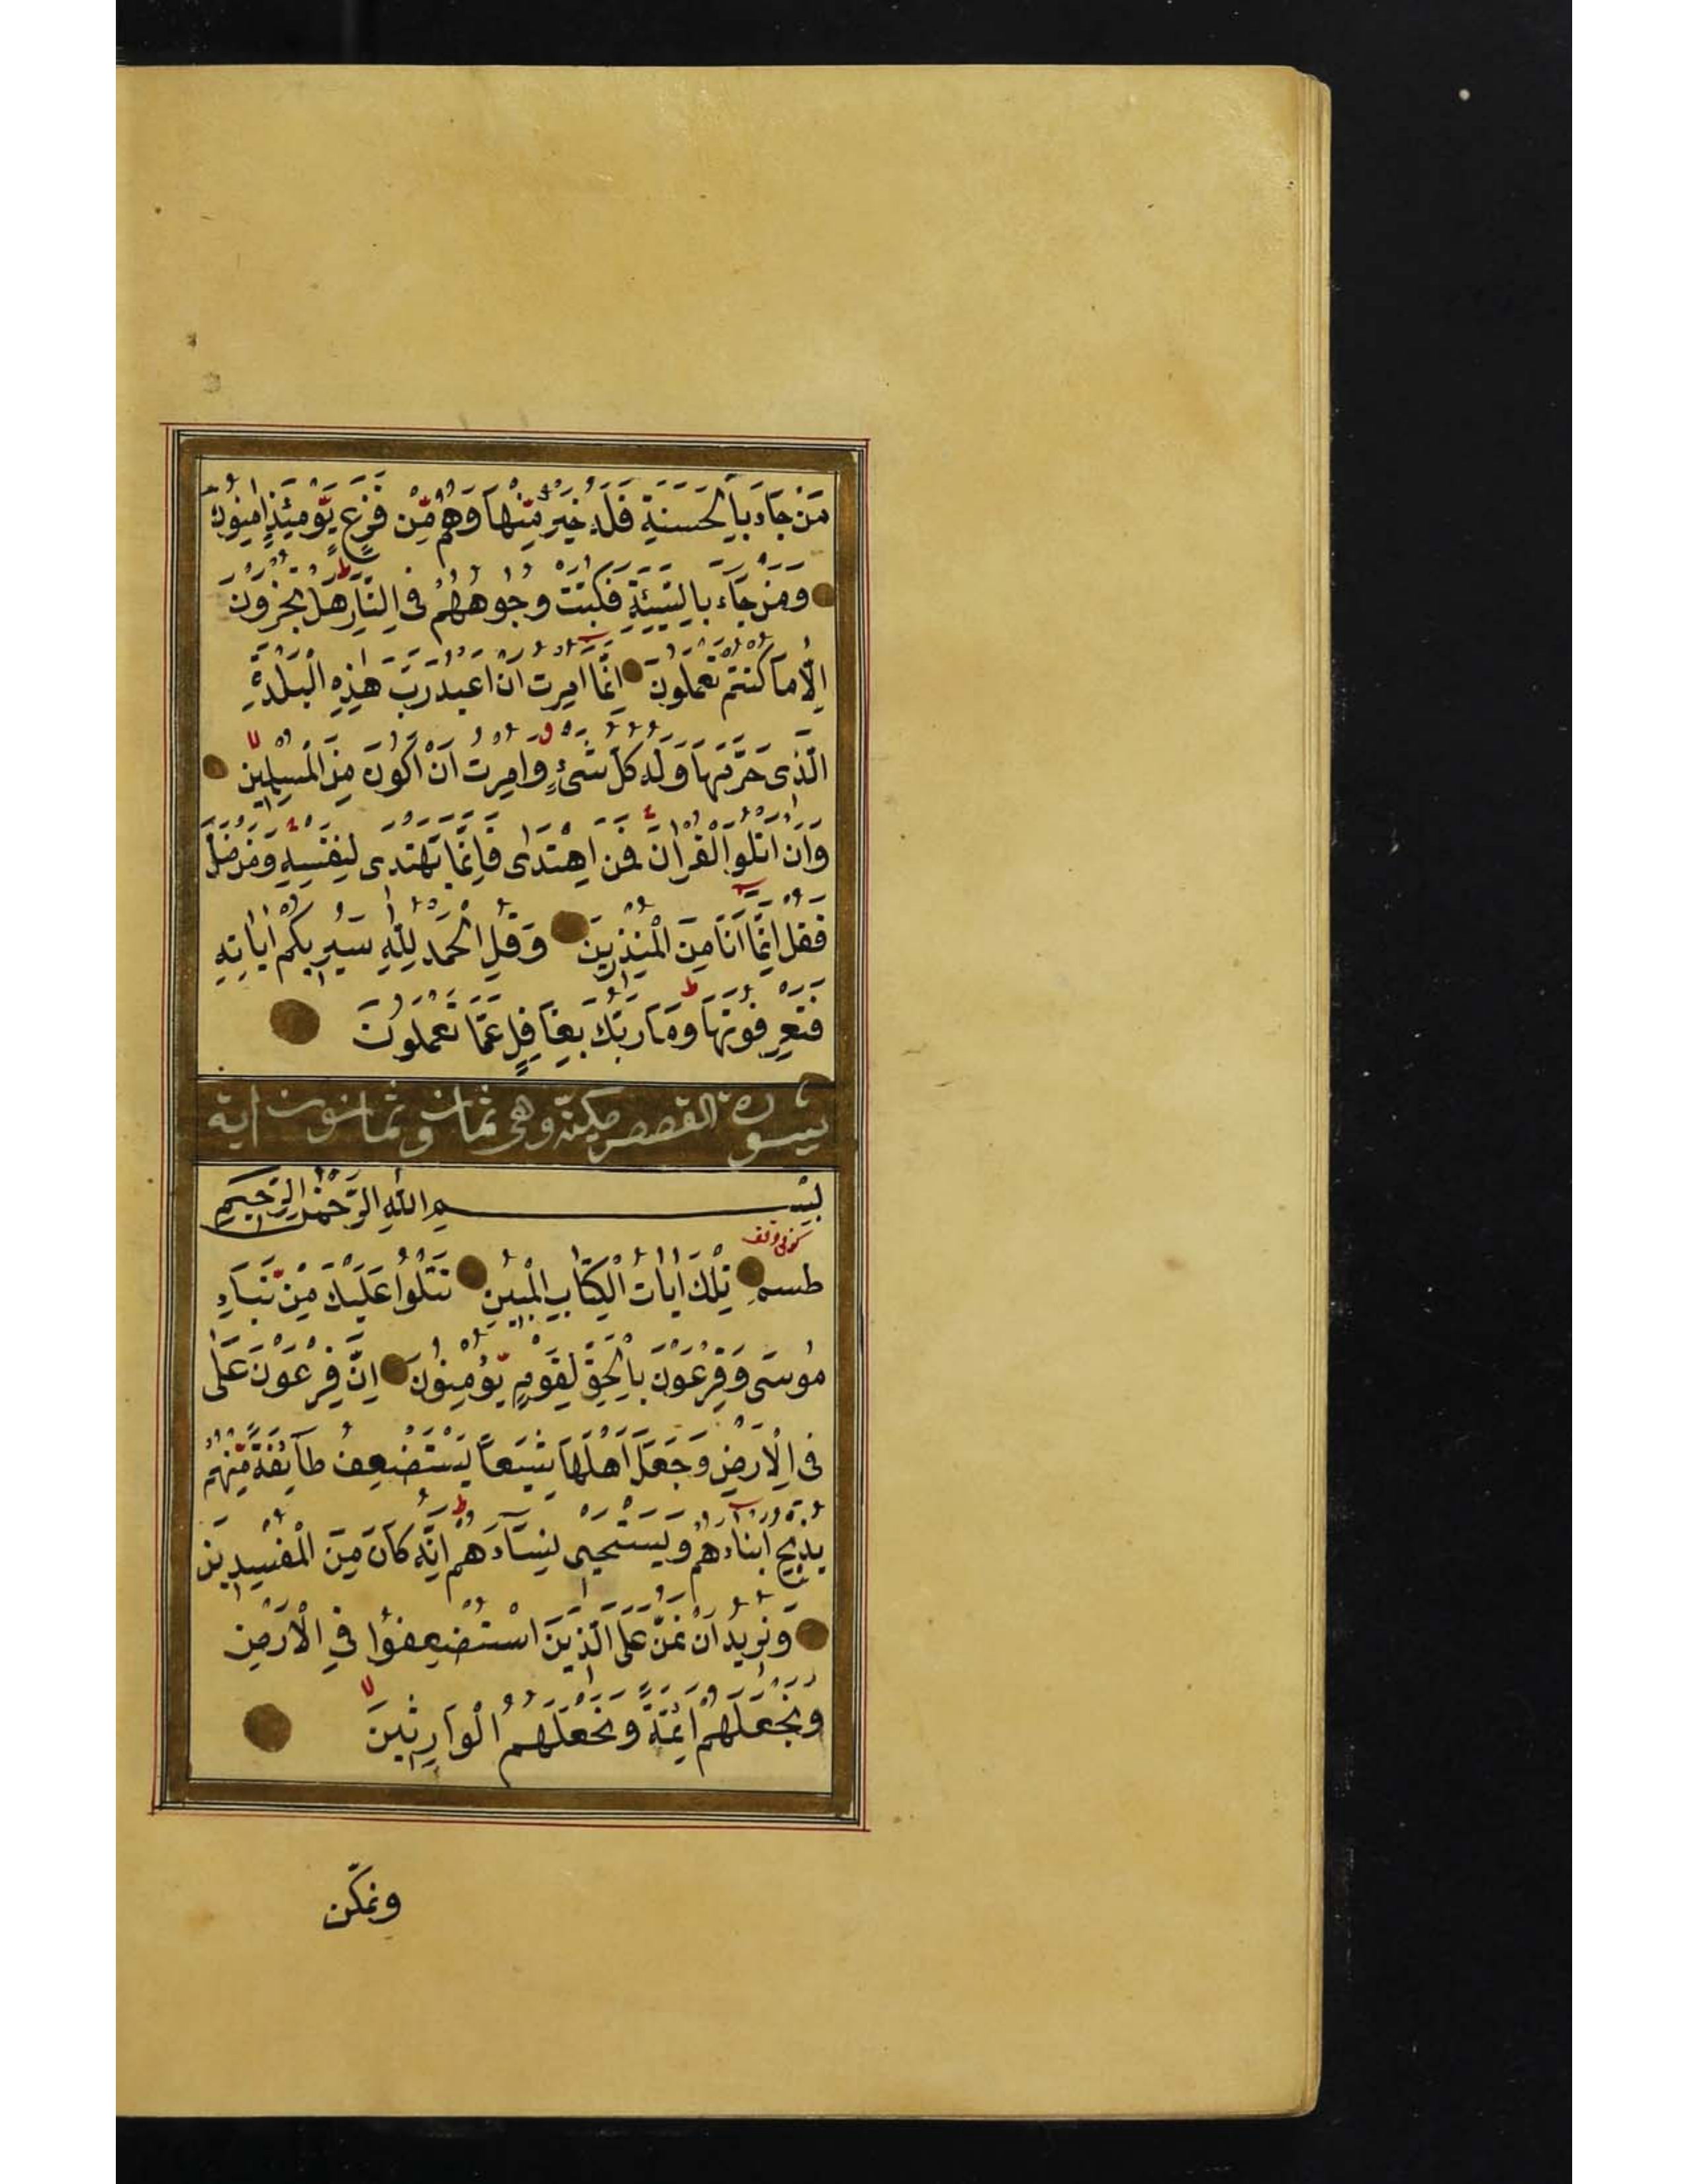 مَنْ جَآءَ بِالْحَسَنَةِ فَلَهُ خَيْرٌ مِّنْهَا وَهُمْ مِّنْ فَزَعٍ يَّوْمَئِذٍ اٰمِنُونَ
وَمَنْ جَآءَ بِالسَّيِّئَةِ فَكُبَّتْ وُجُوهُهُمْ فِى النَّارِ هَلْ تُجْزَوْنَ
اِلَّا مَا كُنْتُمْ تَعْمَلُونَ اِنَّمَا اُمِرْتُ اَنْ اَعْبُدَ رَبَّ هٰذِهِ الْبَلْدَةِ
الَّذِى حَرَّمَهَا وَلَهُ كُلُّ شَىْءٍ وَاُمِرْتُ اَنْ اَكُونَ مِنَ الْمُسْلِمِينَ
وَاَنْ اَتْلُوَا الْقُرْاٰنَ فَمَنِ اهْتَدٰى فَاِنَّمَا يَهْتَدِى لِنَفْسِهِ وَمَنْ ضَلَّ
فَقُلْ اِنَّمَا اَنَا مِنَ الْمُنْذِرِينَ وَقُلِ الْحَمْدُ لِلّٰهِ سَيُرِيكُمْ اٰيَاتِهِ
فَتَعْرِفُونَهَا وَمَا رَبُّكَ بِغَافِلٍ عَمَّا تَعْمَلُونَ
سورة القصص مكيّة وهى ثمان وثمانون اية
بِسْمِ اللّٰهِ الرَّحْمٰنِ الرَّحِيمِ
كوفى وقف
طسم تِلْكَ اٰيَاتُ الْكِتَابِ الْمُبِينِ نَتْلُوا عَلَيْكَ مِنْ نَّبَاءِ
مُوسَى وَفِرْعَوْنَ بِالْحَقِّ لِقَوْمٍ يُّؤْمِنُونَ اِنَّ فِرْعَوْنَ عَلَى
فِى الْاَرْضِ وَجَعَلَ اَهْلَهَا شِيَعًا يَسْتَضْعِفُ طَآئِفَةً مِّنْهُمْ
يُذَبِّحُ اَبْنَآءَهُمْ وَيَسْتَحْيِى نِسَآءَهُمْ اِنَّهُ كَانَ مِنَ الْمُفْسِدِينَ
وَنُرِيدُ اَنْ نَمُنَّ عَلَى الَّذِينَ اسْتُضْعِفُوا فِى الْاَرْضِ
وَنَجْعَلَهُمْ اَئِمَّةً وَنَجْعَلَهُمُ الْوَارِثِينَ
ونمكّن